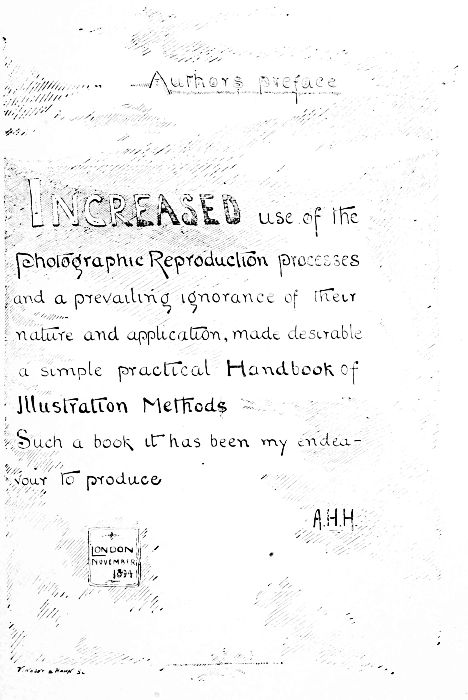 Authors preface
INCREASED use of the
Photographic Reproduction processes
and a prevailing ignorance of their
nature and application, made desirable
a simple practical Handbook of
Illustration Methods
Such a book it has been my endea-
vour to produce
A.H.H.
LONDON
NOVEMBER
1894